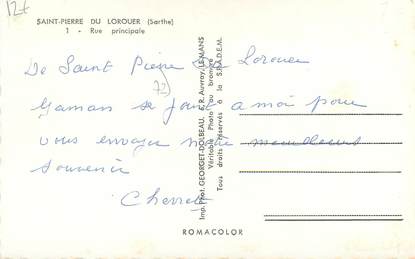 12f
SAINT-PIERRE DU LOROUER (Sarthe)
1 - Rue principale
De Saint Pierre du Lorouer
72
Maman se joint a moi pour
vous envoyer notre meilleurs
souvenir
Imp. Phot. GEORGET-DOLBEAU, E. R. Auvray, LE MANS
Véritable Photo au bromure
Tous droits réservés à la S.P.A.D.E.M.
ROMACOLOR